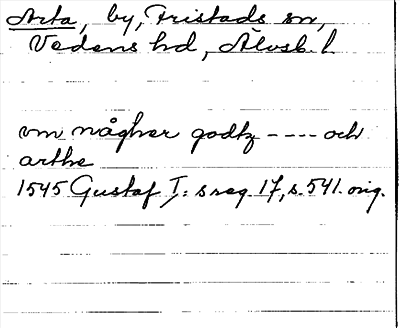 Arta, by, Fristads sn,
Vedens hd, Älvsb. l.
om någher godtz ---- och
arthe
1545 Gustaf I: s reg. 17, s. 541. orig.